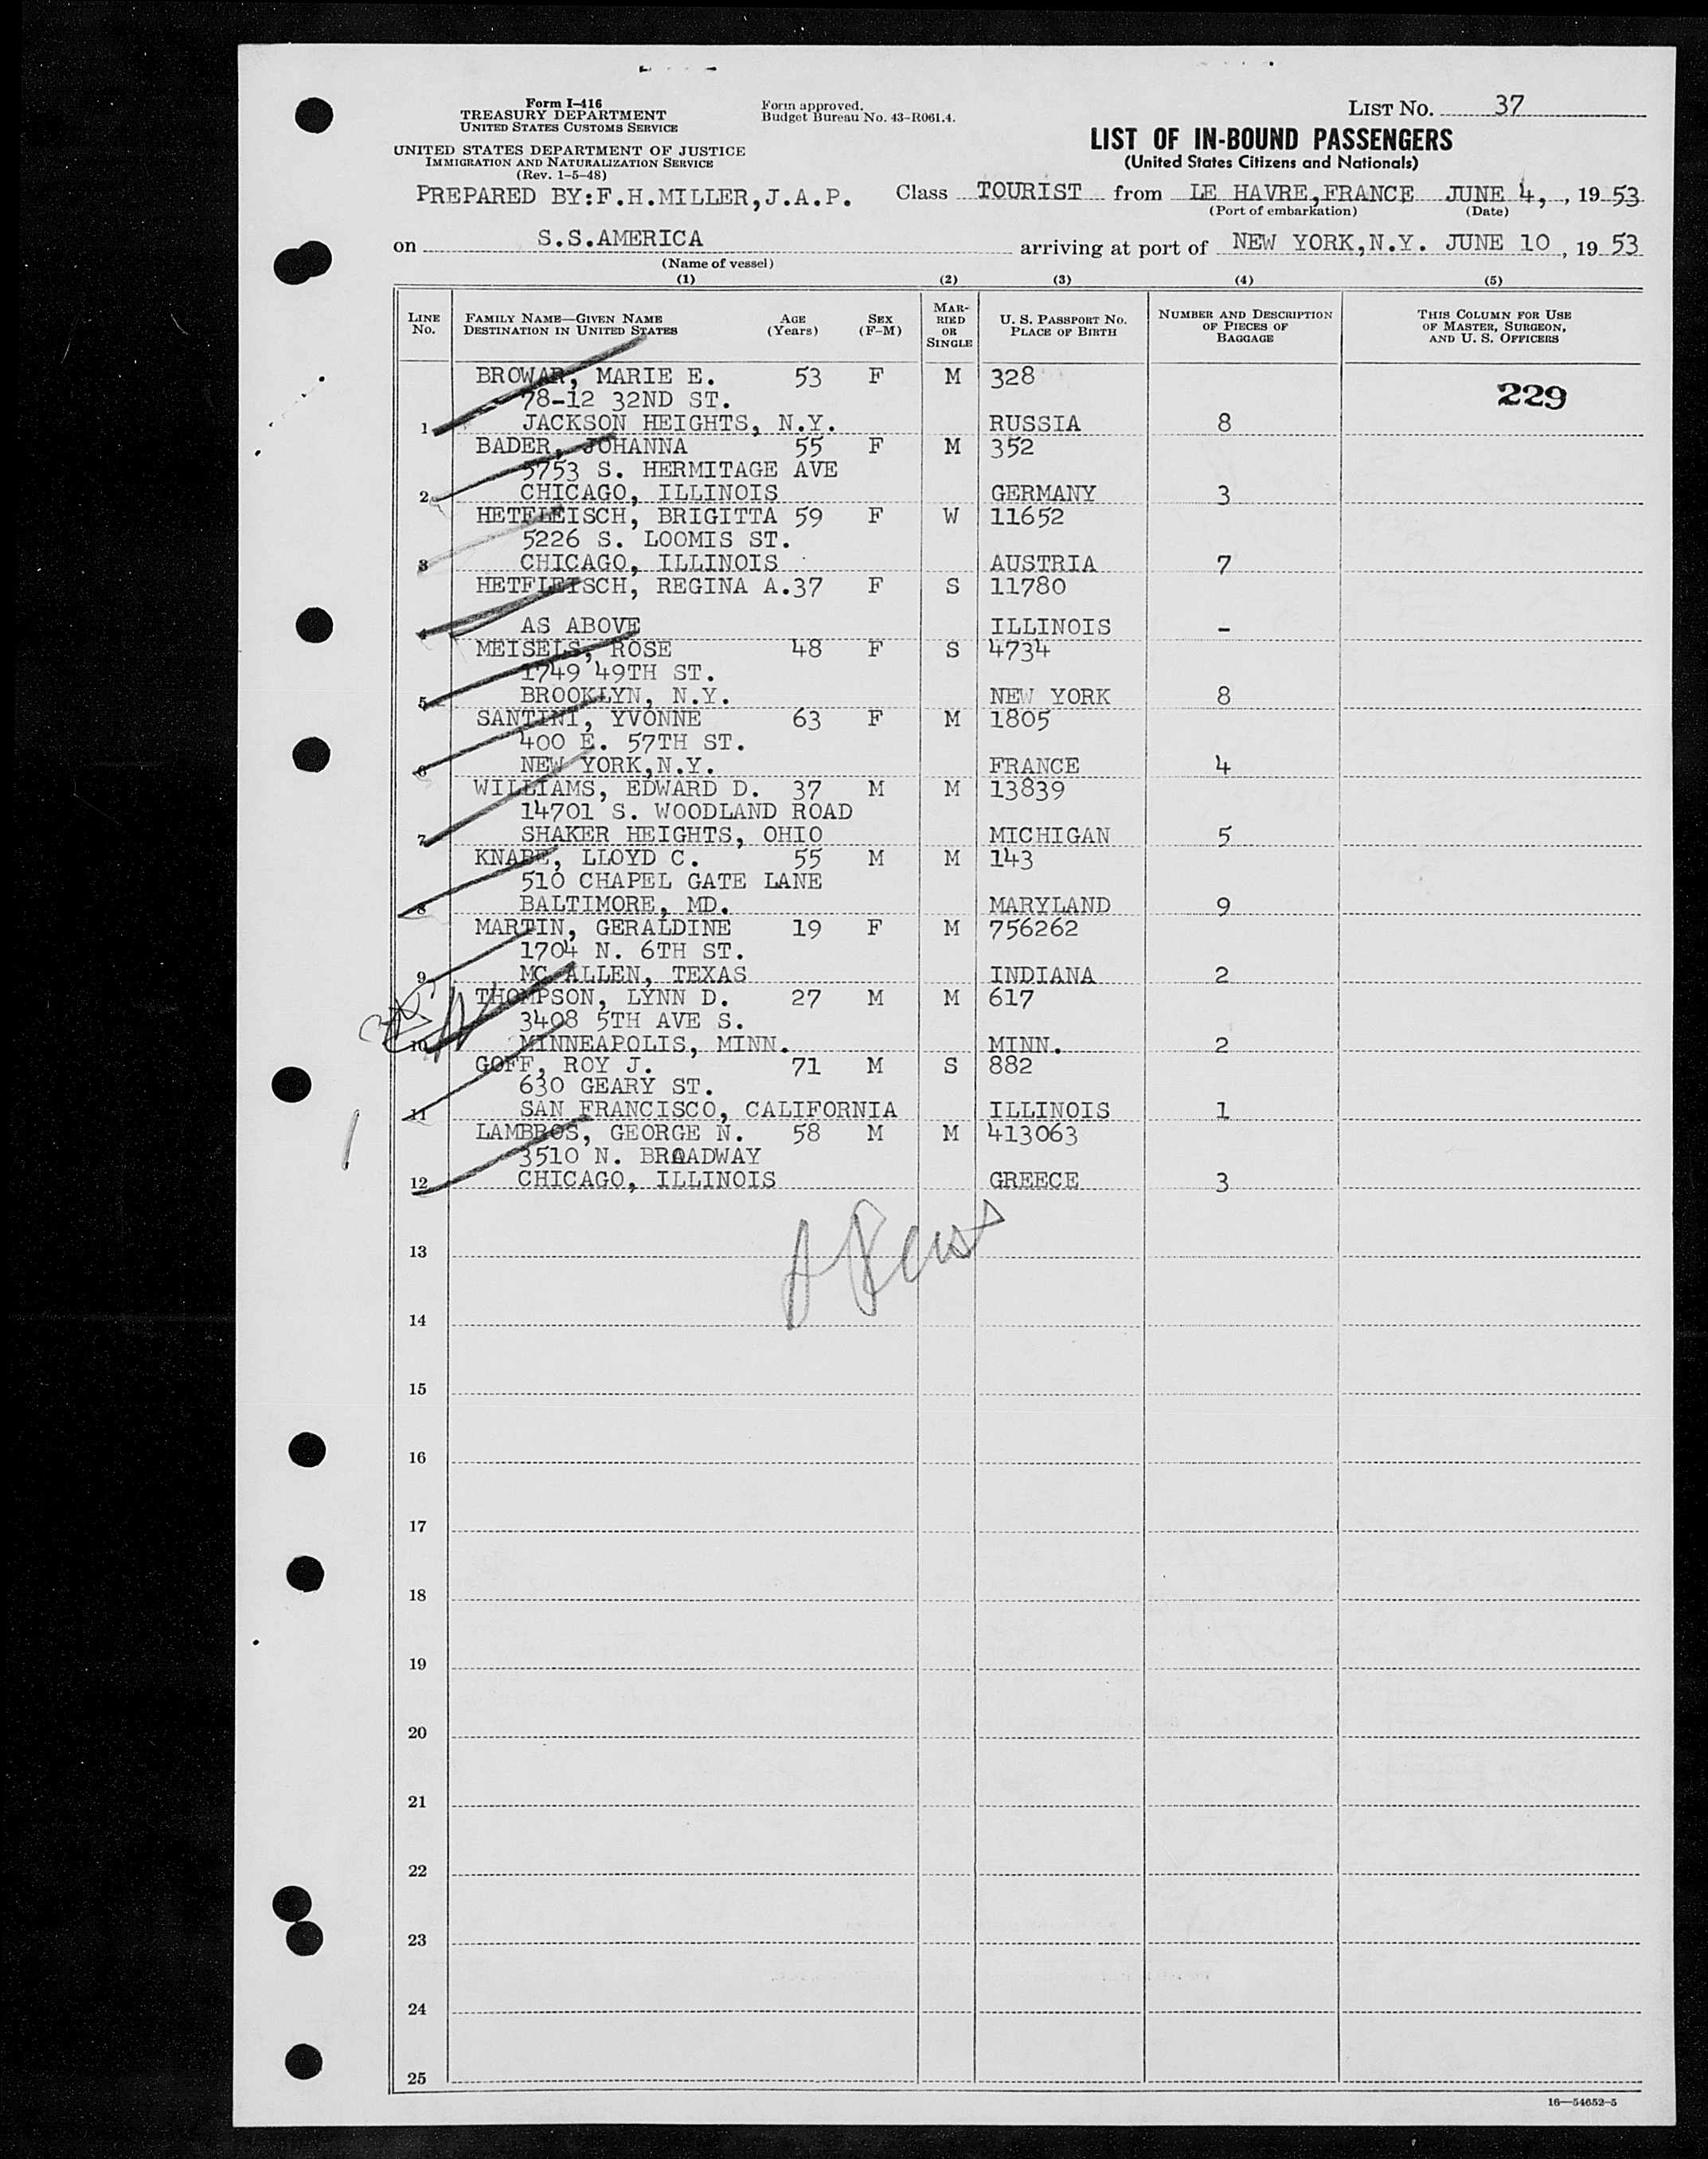 Form I-416
TREASURY DEPARTMENT
UNITED STATES CUSTOMS SERVICE
UNITED STATES DEPARTMENT OF JUSTICE
IMMIGRATION AND NATURALIZATION SERVICE
(Rev. 1-5-48)
Form approved.
Budget Bureau No. 43-R061.4.
LIST No. 37
LIST OF IN-BOUND PASSENGERS
(United States Citizens and Nationals)
PREPARED BY:F.H.MILLER,J.A.P.
Class TOURIST from LE HAVRE,FRANCE JUNE 4, , 19 53
(Port of embarkation) (Date)
on S.S.AMERICA arriving at port of NEW YORK,N.Y. JUNE 10 , 19 53
(Name of vessel)
(1) (2) (3) (4) (5)
LINE No. FAMILY NAME—GIVEN NAME DESTINATION IN UNITED STATES AGE (Years) SEX (F-M) MARRIED OR SINGLE U. S. PASSPORT No. PLACE OF BIRTH NUMBER AND DESCRIPTION OF PIECES OF BAGGAGE THIS COLUMN FOR USE OF MASTER, SURGEON, AND U. S. OFFICERS
BROWAR, MARIE E. 53 F M 328
229
78-12 32ND ST.
1 JACKSON HEIGHTS, N.Y. RUSSIA 8
BADER, JOHANNA 55 F M 352
5753 S. HERMITAGE AVE
2 CHICAGO, ILLINOIS GERMANY 3
HETFLEISCH, BRIGITTA 59 F W 11652
5226 S. LOOMIS ST.
3 CHICAGO, ILLINOIS AUSTRIA 7
HETFLEISCH, REGINA A. 37 F S 11780
4 AS ABOVE ILLINOIS -
MEISELS, ROSE 48 F S 4734
1749 49TH ST.
5 BROOKLYN, N.Y. NEW YORK 8
SANTINI, YVONNE 63 F M 1805
400 E. 57TH ST.
6 NEW YORK,N.Y. FRANCE 4
WILLIAMS, EDWARD D. 37 M M 13839
14701 S. WOODLAND ROAD
7 SHAKER HEIGHTS, OHIO MICHIGAN 5
KNABE, LLOYD C. 55 M M 143
510 CHAPEL GATE LANE
8 BALTIMORE, MD. MARYLAND 9
MARTIN, GERALDINE 19 F M 756262
1704 N. 6TH ST.
9 MC ALLEN, TEXAS INDIANA 2
THOMPSON, LYNN D. 27 M M 617
3408 5TH AVE S.
10 MINNEAPOLIS, MINN. MINN. 2
GOFF, ROY J. 71 M S 882
630 GEARY ST.
11 SAN FRANCISCO, CALIFORNIA ILLINOIS 1
LAMBROS, GEORGE N. 58 M M 413063
3510 N. BROADWAY
12 CHICAGO, ILLINOIS GREECE 3
13
14
15
16
17
18
19
20
21
22
23
24
25
16—54652-5